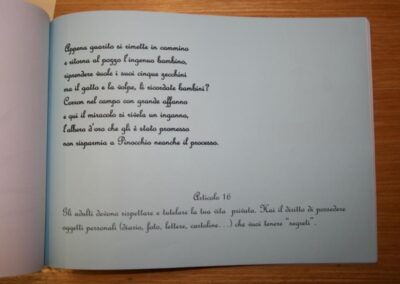 Appena guarito si rimette in cammino
e ritorna al pozzo l'ingenuo bambino,
riprendere vuole i suoi cinque zecchini
ma il gatto e la volpe, li ricordate bambini?
Corron nel campo con grande affanno
e qui il miracolo si rivela un inganno,
l'albero d'oro che gli è stato promesso
non risparmia a Pinocchio neanche il processo.
Articolo 16
Gli adulti devono rispettare e tutelare la tua vita privata. Hai il diritto di possedere
oggetti personali (diario, foto, lettere, cartoline...) che vuoi tenere "segreti".